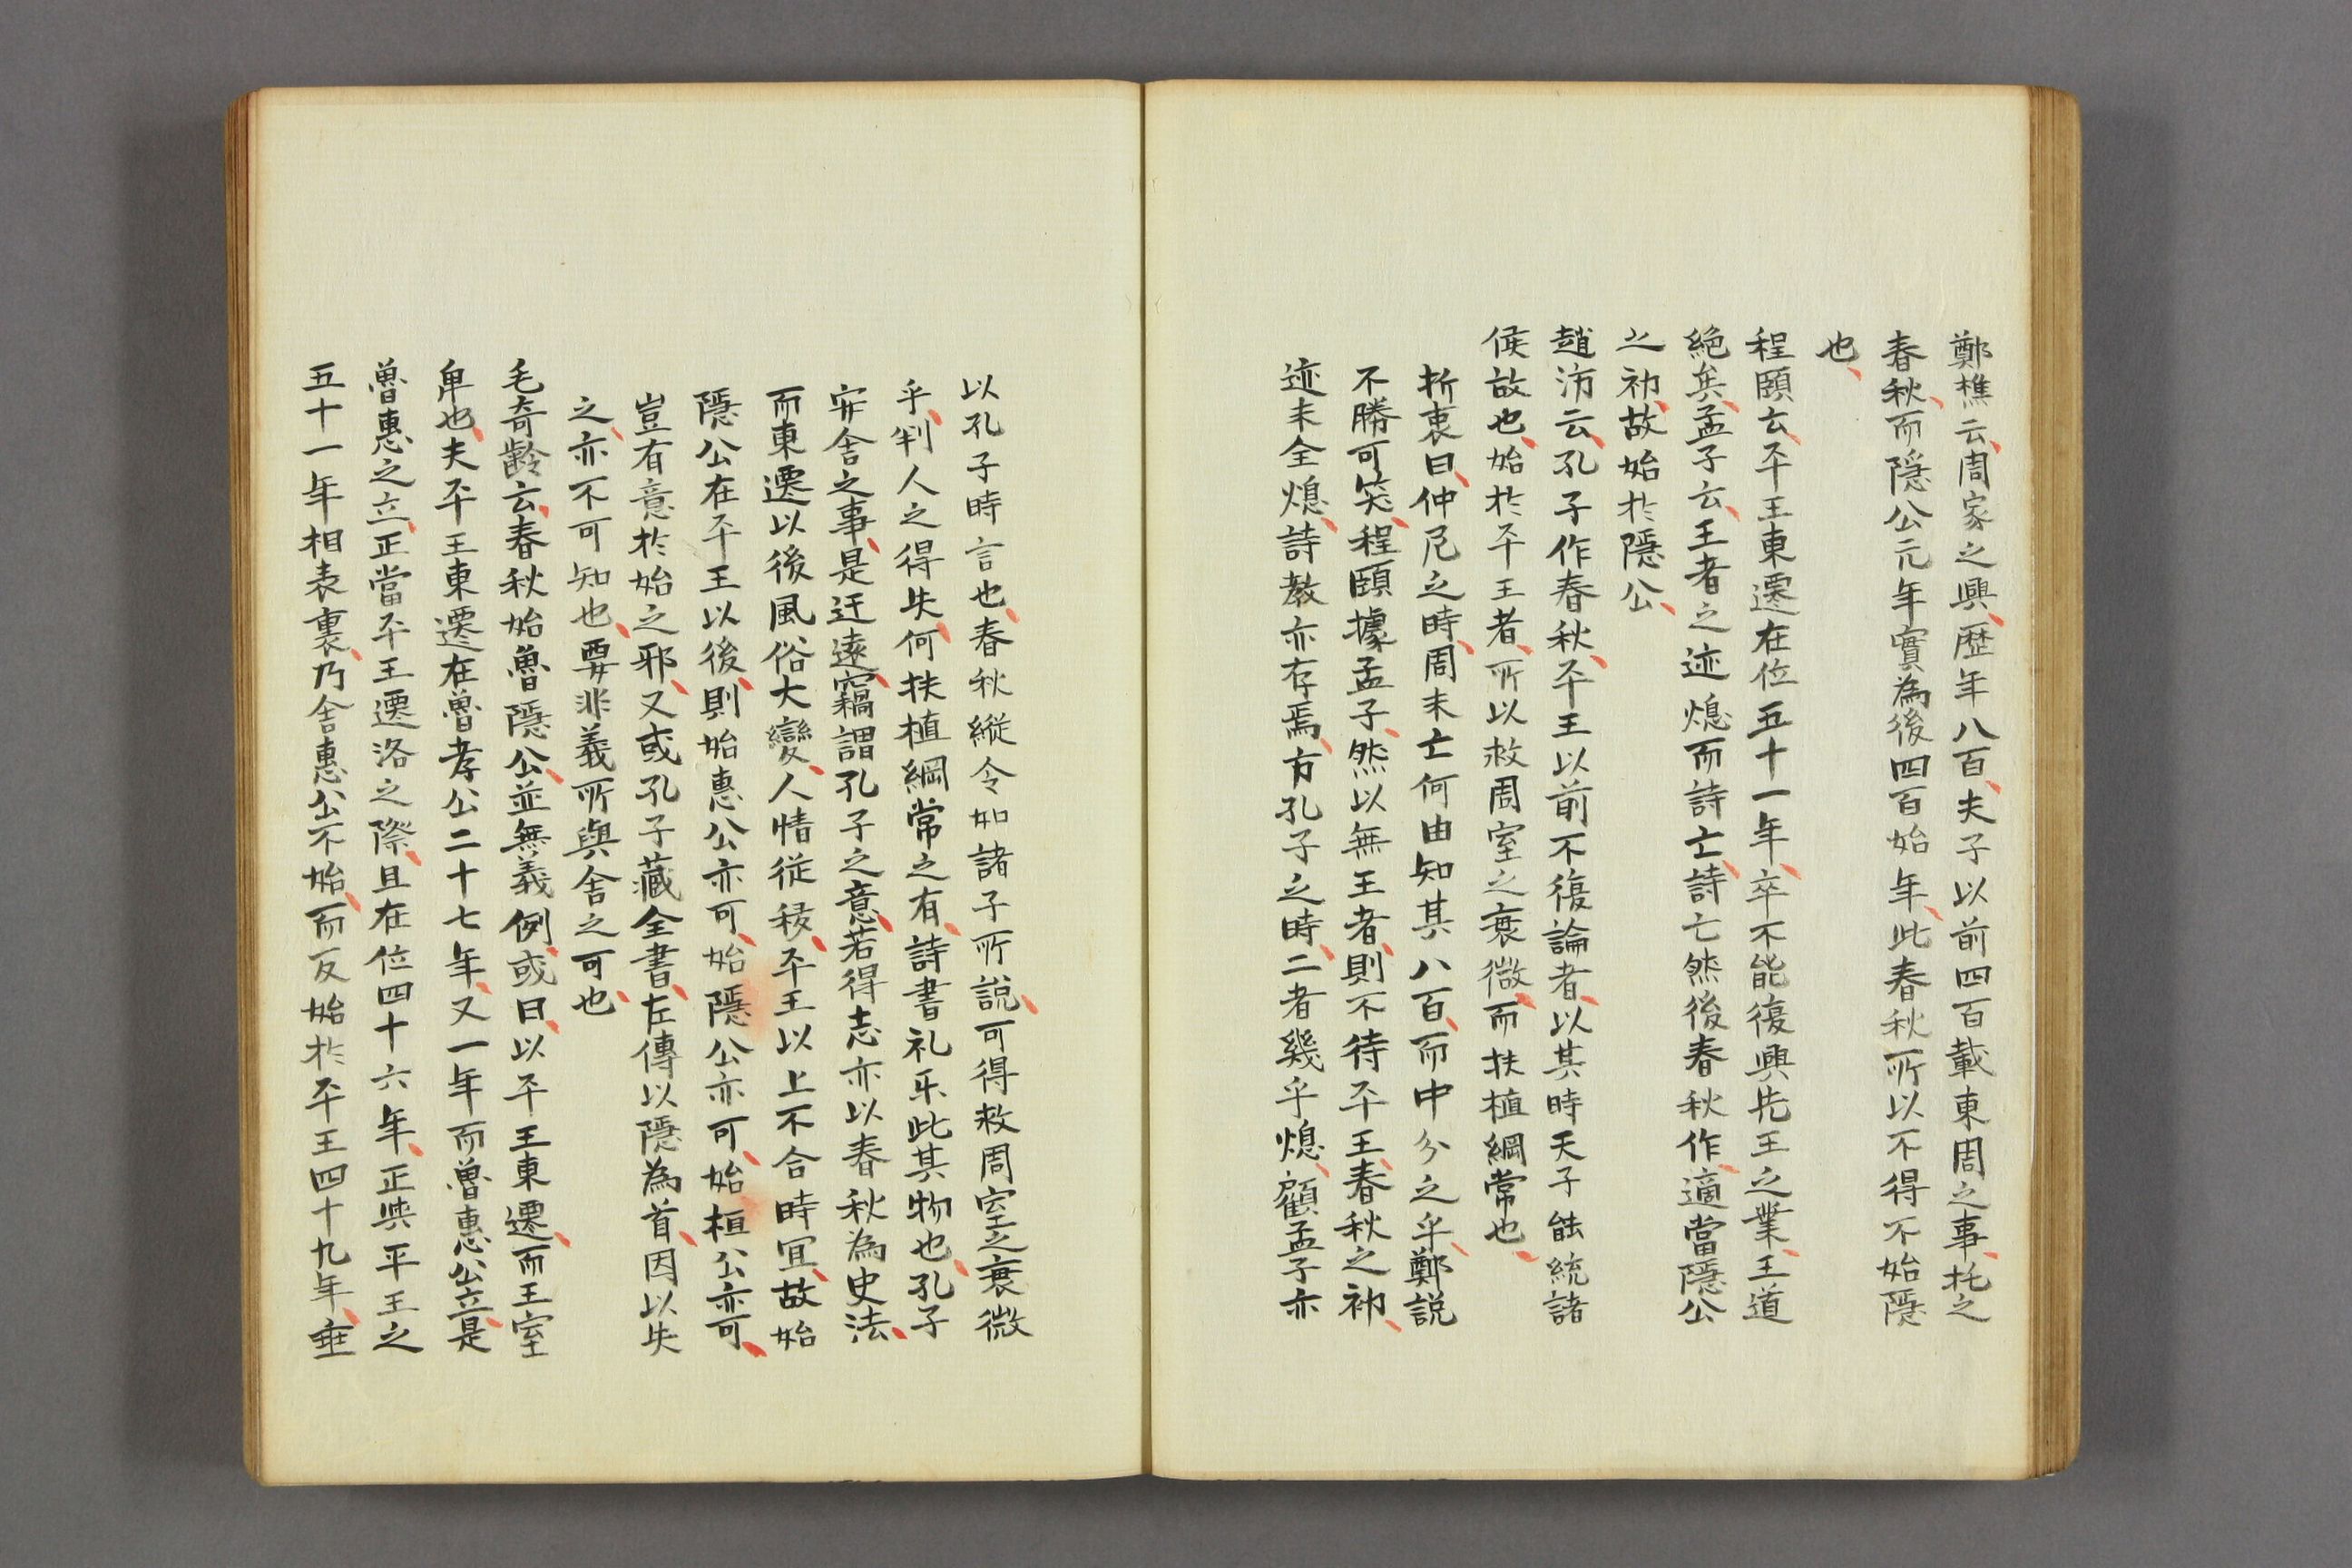 鄭樵云、周家之興、歷年八百、夫子以前四百載東周之事、托之
春秋、而隱公元年實為後四百始年、此春秋所以不得不始隱
也、
程頤云、平王東遷在位五十一年、卒不能復興先王之業、王道
絕矣、孟子云、王者之迹熄而詩亡、詩亡然後春秋作、適當隱公
之初、故始於隱公、
趙汸云、孔子作春秋、平王以前不復論者、以其時天子能統諸
侯故也、始於平王者、所以救周室之衰微、而扶植綱常也、
折衷曰、仲尼之時、周未亡何由知其八百、而中分之乎、鄭説
不勝可笑、程頤據孟子、然以無王者、則不待平王、春秋之初、
迹未全熄、詩教亦存焉、方孔子之時、二者幾乎熄、顧孟子亦
以孔子時言也、春秋縱令如諸子所説、可得救周室之衰微
乎、判人之得失、何扶植綱常之有、詩書礼乐此其物也、孔子
安舍之事、是迂遠、竊謂孔子之意、若得志亦以春秋為史法、
而東遷以後風俗大變、人情従移、平王以上不合時冝、故始
隱公在平王以後、則始惠公亦可、始隱公亦可、始桓公亦可、
豈有意於始之邪、又或孔子藏全書、左傳以隱為首、因以失
之、亦不可知也、要非義所與舍之可也、
毛奇齡云、春秋始魯隱公、並無義例、或曰、以平王東遷、而王室
卑也、夫平王東遷在魯孝公二十七年、又一年而魯惠公立、是
魯惠之立、正當平王遷洛之際、且在位四十六年、正與平王之
五十一年相表裏、乃舍惠公不始、而反始於平王四十九年、垂